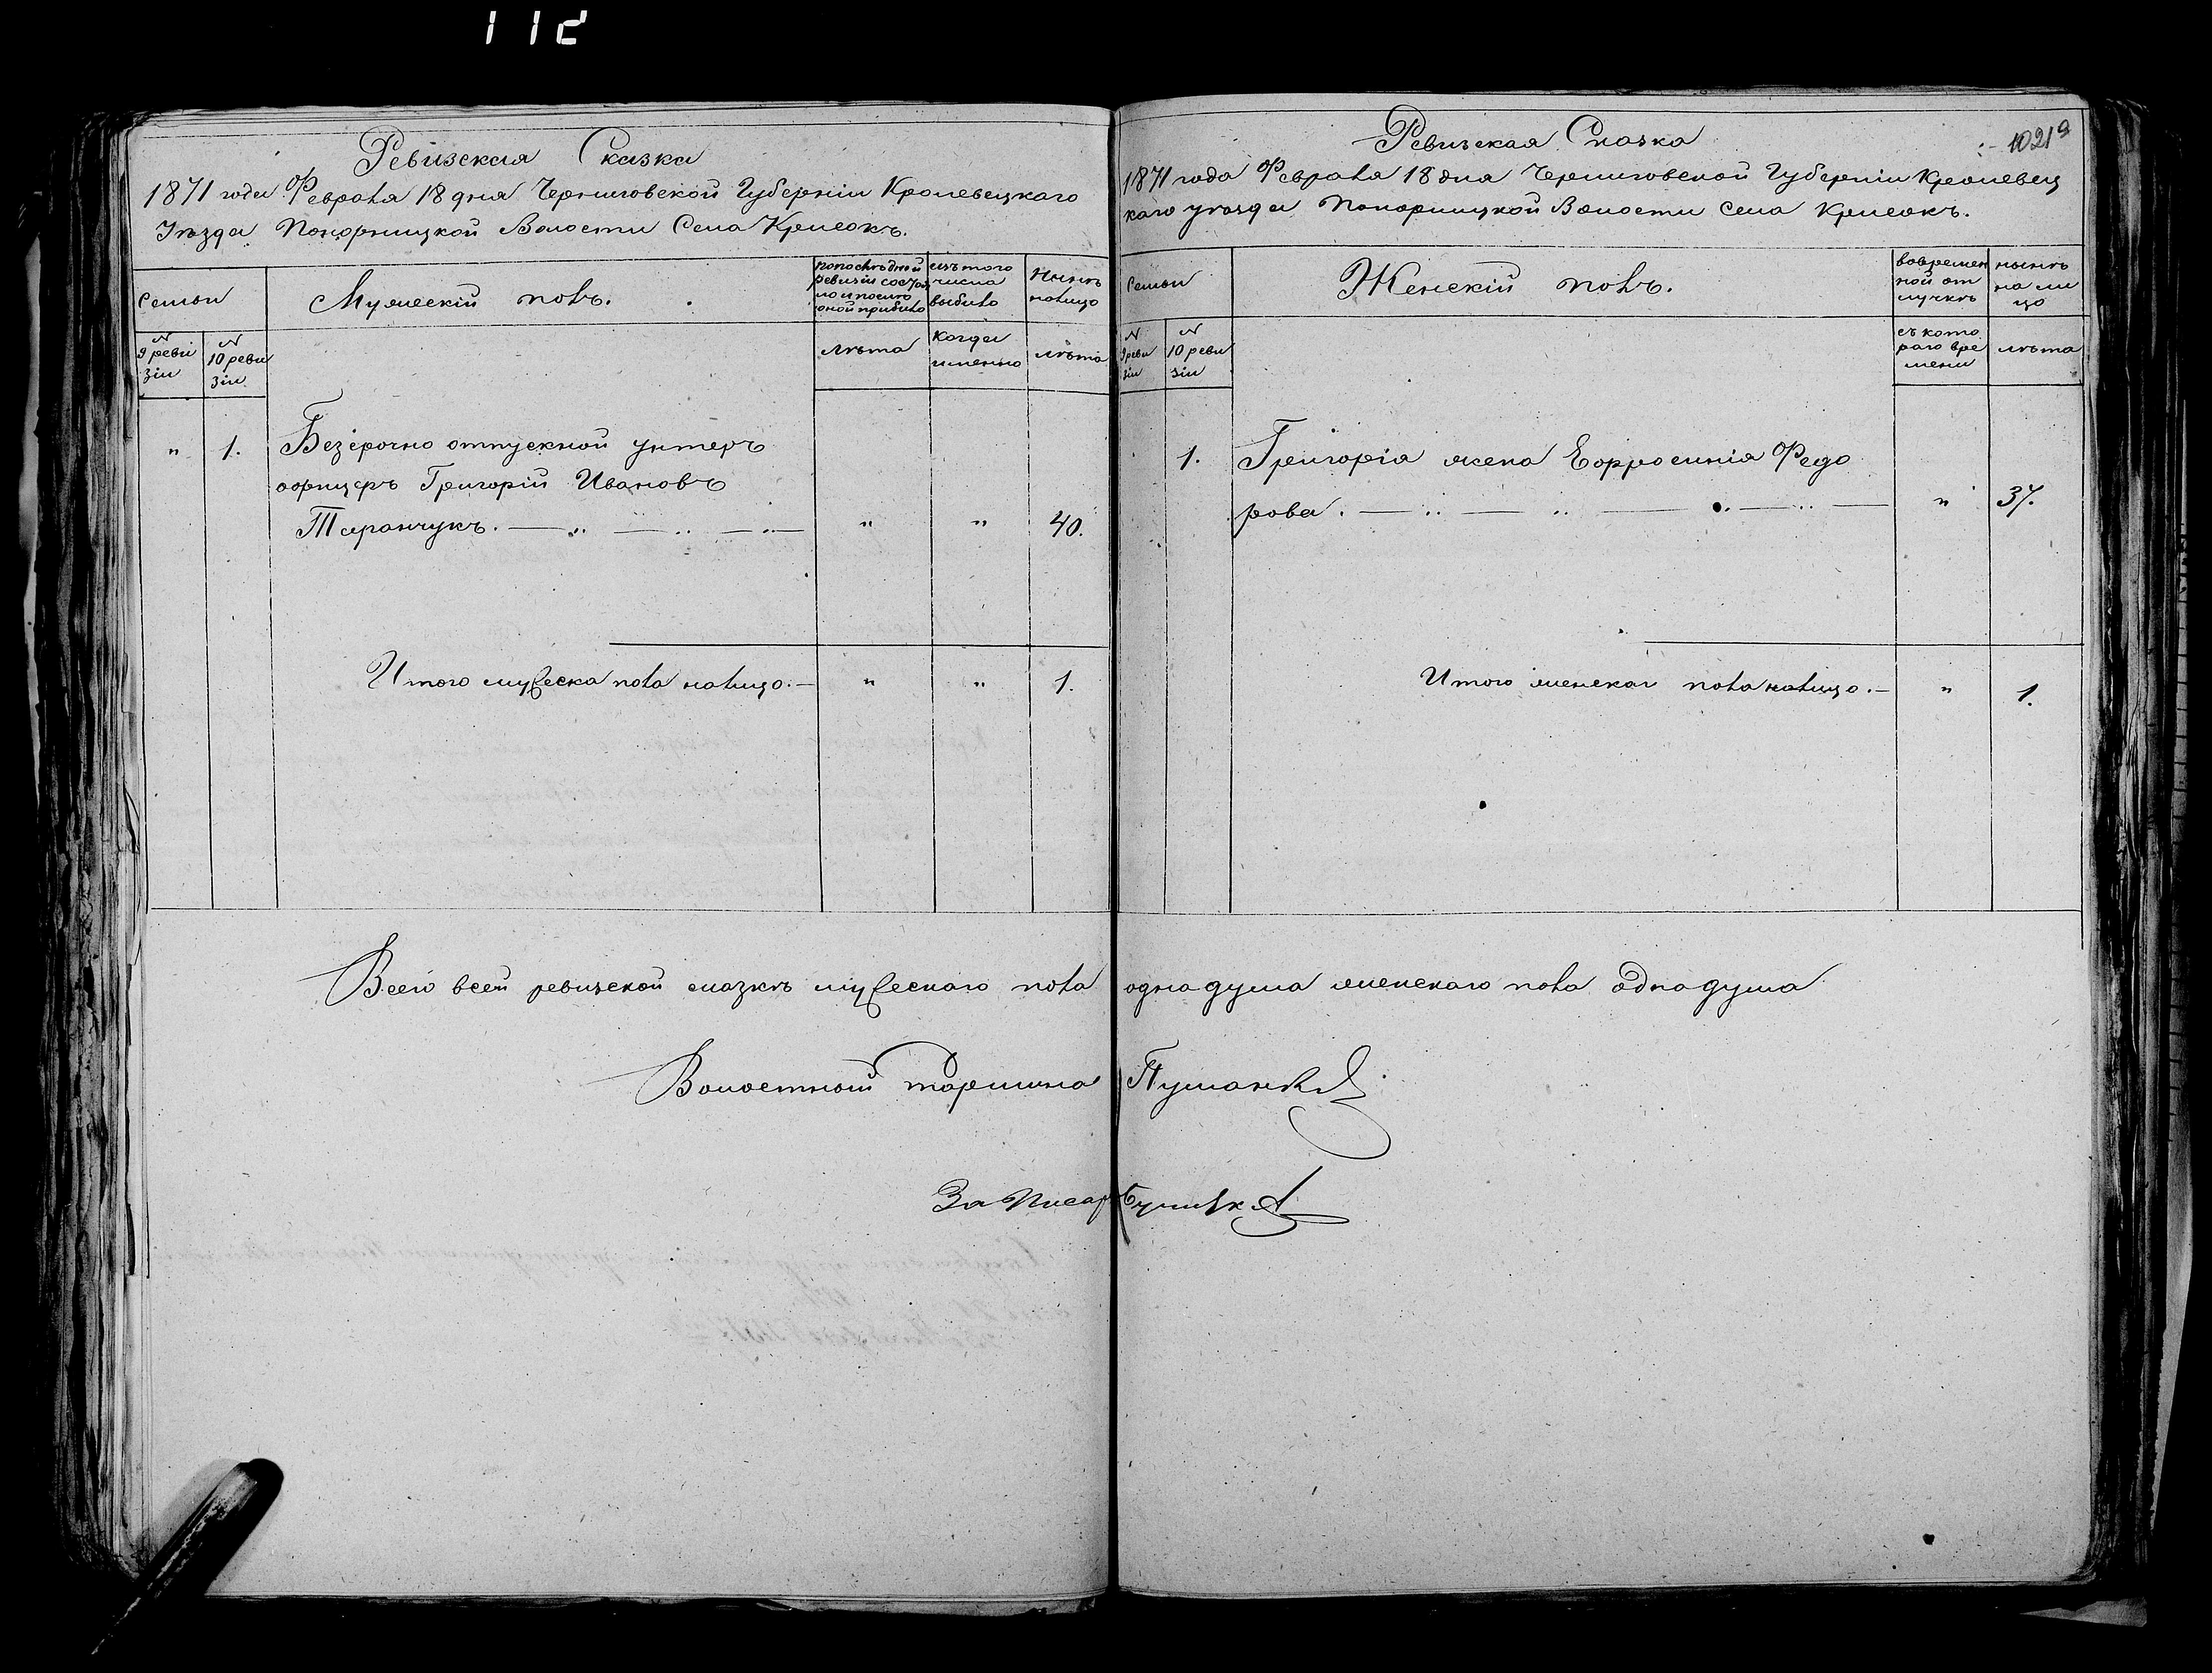 112
Ревизская Сказка
1871 года Февраля 18 дня Черниговской Губерніи Кролевецкаго
Уѣзда Понорницкой Волости Села Крисокъ.
Семьи
Мужескій полъ.
по последней ревизіи состояло и после оной прибыло
изъ того числа выбыло
Нынѣ на лицо
N 9 ревизіи
N 10 ревизіи
лѣта
когда именно
лѣта
" 1. Безсрочно отпускной унтеръ
офицеръ Григорій Ивановъ
Таранчукъ. " " 40.
Итого мужеска пола на лицо. " " 1.
1021
Ревизская Сказка
1871 года Февраля 18 дня Черниговской Губерніи Кролевец
каго уѣзда Понорницкой Волости Села Крисокъ.
Семьи
Женскій полъ.
во временной отлучкѣ
нынѣ на лицо
N 9 ревизіи
N 10 ревизіи
съ котораго времени
лѣта
1. Григорія жена Ефросинія Федо
рова. " 37.
Итого женскаг пола на лицо. " 1.
Всего в сей ревизской сказкѣ мужескаго пола одна душа женскаго пола одна душа
Волостный таршина
За Писар